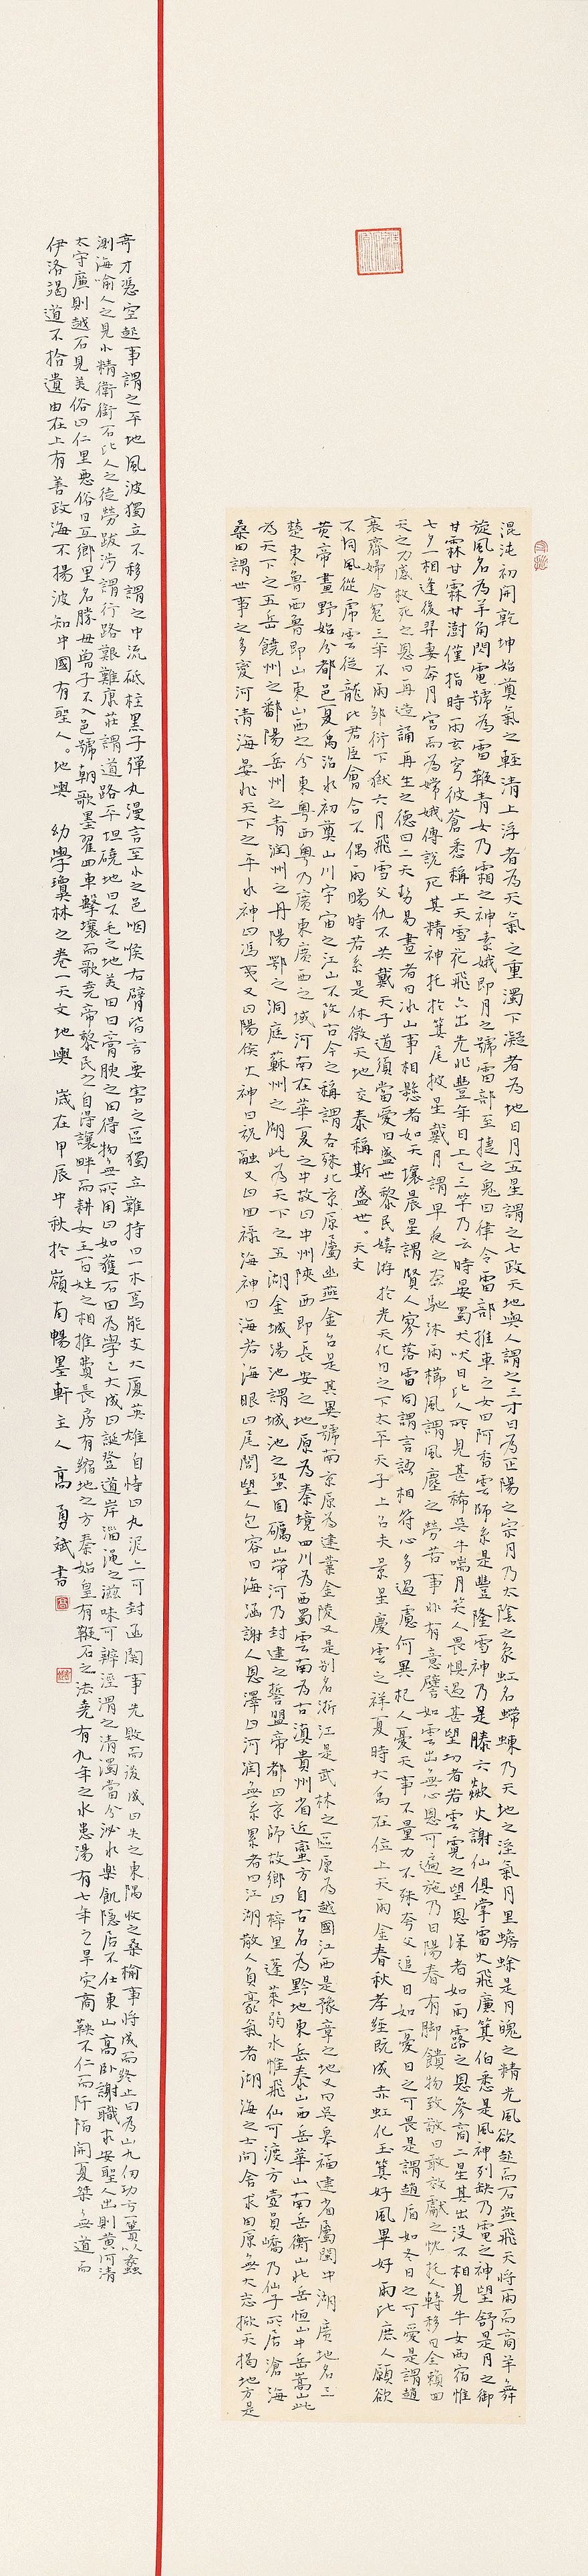 混沌初開乾坤始奠氣之輕清上浮者為天氣之重濁下凝者為地日月五星謂之七政天地與人謂之三才日為眾陽之宗月乃太陰之象虹名螮蝀乃天地之淫氣月里蟾蜍是月魄之精光風欲起而石燕飛天將雨而商羊舞
旋風名為羊角閃電號為雷鞭青女乃霜之神素娥即月之號雷部至捷之鬼曰律令雷部推車之女曰阿香雲師系是豐隆雪神乃是滕六歘火謝仙俱掌雷火飛廉箕伯悉是風神列缺乃電之神望舒是月之御
甘霖甘澍僅指時雨玄穹彼蒼悉稱上天雪花飛六出先兆豐年日上已三竿乃云時晏蜀犬吠日比人所見甚稀吳牛喘月笑人畏懼過甚望切者若雲霓之望恩深者如雨露之恩參商二星其出沒不相見牛女兩宿惟
七夕一相逢後羿妻奔月宮而為嫦娥傅說死其精神托於箕尾披星戴月謂早夜之奔馳沐雨櫛風謂風塵之勞苦事非有意譬如雲出無心恩可遍施乃曰陽春有腳饋物致敬曰敢效獻之忱托人轉移曰全賴回
天之力感救死之恩曰再造誦再生之德曰二天勢易盡者曰冰山事相懸者如天壤晨星謂賢人寥落雷同謂言語相符心多過慮何異杞人憂天事不量力不殊夸父追日如夏日之可畏是謂趙盾如冬日之可愛是謂趙
衰齊婦含冤三年不雨鄒衍下獄六月飛雪父仇不共戴天子道須當愛日盛世黎民嬉游於光天化日之下太平天子上召夫景星慶雲之祥夏時大禹在位上天雨金春秋孝經既成赤虹化玉箕好風畢好雨比庶人願欲
不同風從虎雲從龍比君臣會合不偶雨暘時若系是休徵天地交泰稱斯盛世。天文
黃帝畫野始分都邑夏禹治水初奠山川宇宙之江山不改古今之稱謂各殊北京原屬幽燕金台是其異號南京原為建業金陵又是別名浙江是武林之區原為越國江西是豫章之地又曰吳皋福建省屬閩中湖廣地名三
楚東魯西魯即山東山西之分東粵西粵乃廣東廣西之域河南在華夏之中故曰中州陝西即長安之地原為秦境四川為西蜀雲南為古滇貴州省近蠻方自古名為黔地東岳泰山西岳華山南岳衡山北岳恒山中岳嵩山此
為天下之五岳饒州之鄱陽岳州之青潤州之丹陽鄂之洞庭蘇州之湖此為天下之五湖金城湯池謂城池之鞏固礪山帶河乃封建之誓盟帝都曰京師故鄉曰梓里蓬萊弱水惟飛仙可渡方壺員嶠乃仙子所居滄海
桑田謂世事之多變河清海晏兆天下之平水神曰馮夷又曰陽侯火神曰祝融又曰回祿海神曰海若海眼曰尾閭望人包容曰海涵謝人恩澤曰河潤無系累者曰江湖散人負豪氣者湖海之士問舍求田原無大志掀天揭地方是
奇才憑空起事謂之平地風波獨立不移謂之中流砥柱黑子彈丸漫言至小之邑咽喉右臂皆言要害之區獨立難持曰一木焉能支大廈英雄自恃曰丸泥亦可封函關事先敗而後成曰失之東隅收之桑榆事將成而終止曰為山九仞功虧一簣以蠡
測海喻人之見小精衛銜石比人之徒勞跋涉謂行路艱難康莊謂道路平坦磽地曰不毛之地美田曰膏腴之田得物無所用曰如獲石田為學已大成曰誕登道岸淄澠之滋味可辨涇渭之清濁當分泌水樂飢隱居不仕東山高臥謝職求安聖人出則黃河清
太守廉則越石見美俗曰仁里惡俗曰互鄉里名勝母曾子不入邑號朝歌墨翟回車擊壤而歌堯帝黎民之自得讓畔而耕文王百姓之相推費長房有縮地之方秦始皇有鞭石之法堯有九年之水患湯有七年之旱災商鞅不仁而阡陌開夏桀無道而
伊洛竭道不拾遺由在上有善政海不揚波知中國有聖人。地輿 幼學瓊林之卷一天文地輿 歲在甲辰中秋於嶺南暢墨軒主人高勇斌書